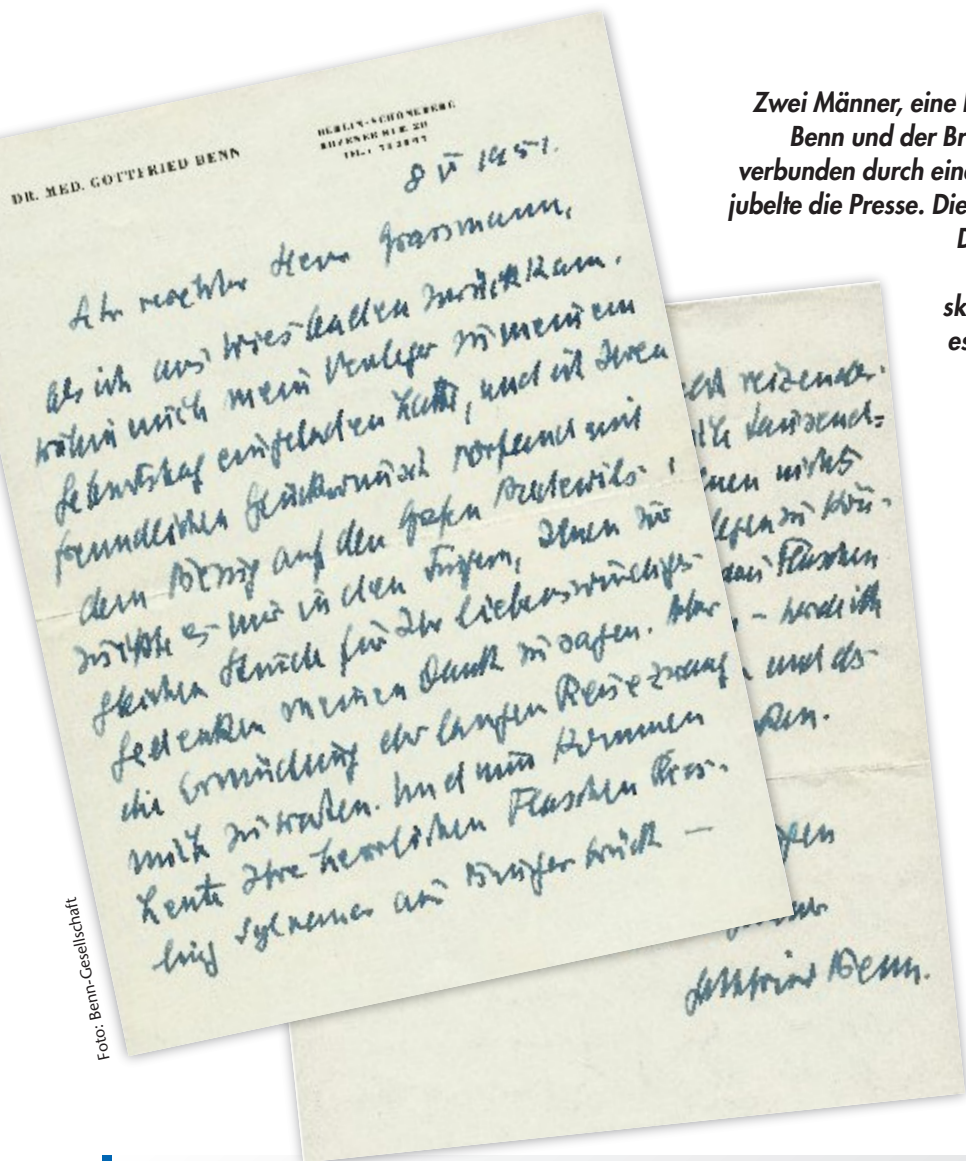 Zwei Männer, eine
Benn und der Br
verbunden durch eine
jubelte die Presse. Die
D
sk
es
DR. MED. GOTTFRIED BENN
BERLIN-SCHÖNEBERG
BOZENER STR. 20
TEL.:
8 V 1951.
Sehr verehrter Herr Grassmann,
als ich aus Wiesbaden zurückkam,
wohin mich mein Verleger zu meinem
Geburtstag eingeladen hatte, und ich Ihren
freundlichen Glückwunsch vorfand mit
dem Bezug auf den Grafen Podewils,
zuckte es mir in den Fingern, Ihnen zur
gleichen Stunde für Ihr liebenswürdiges
Gedenken meinen Dank zu sagen. Aber
die Ermüdung der langen Reise zwang
mich zu warten. Und nun kommen
heute Ihre herrlichen Flaschen Ries-
ling Sylvaner aus Bingerbrück —
reizender
tausend=
nen nichts
legen zu kön-
Flaschen
– werde ich
und das
ken.
Gottfried Benn.
Foto: Benn-Gesellschaft